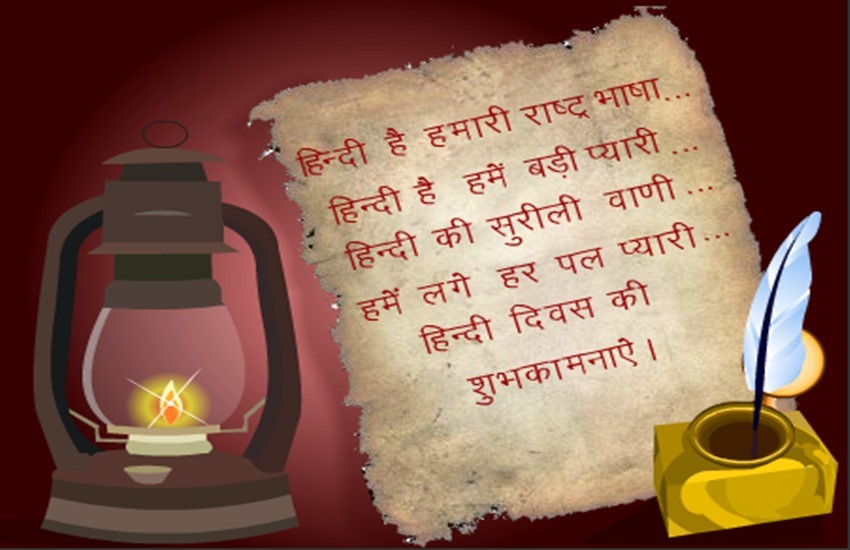 हिन्दी है हमारी राष्ट्र भाषा...
हिन्दी है हमें बड़ी प्यारी ...
हिन्दी की सुरीली वाणी ...
हमें लगे हर पल प्यारी ...
हिन्दी दिवस की
शुभकामनाऐ ।